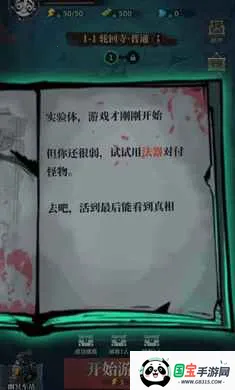 50/50
1-1 轮回寺·普通
1
实验体，游戏才刚刚开始
但你还很弱，试试用法器对付
怪物。
去吧，活到最后能看到真相
开始游
国宝手游网
WWW.GB815.COM